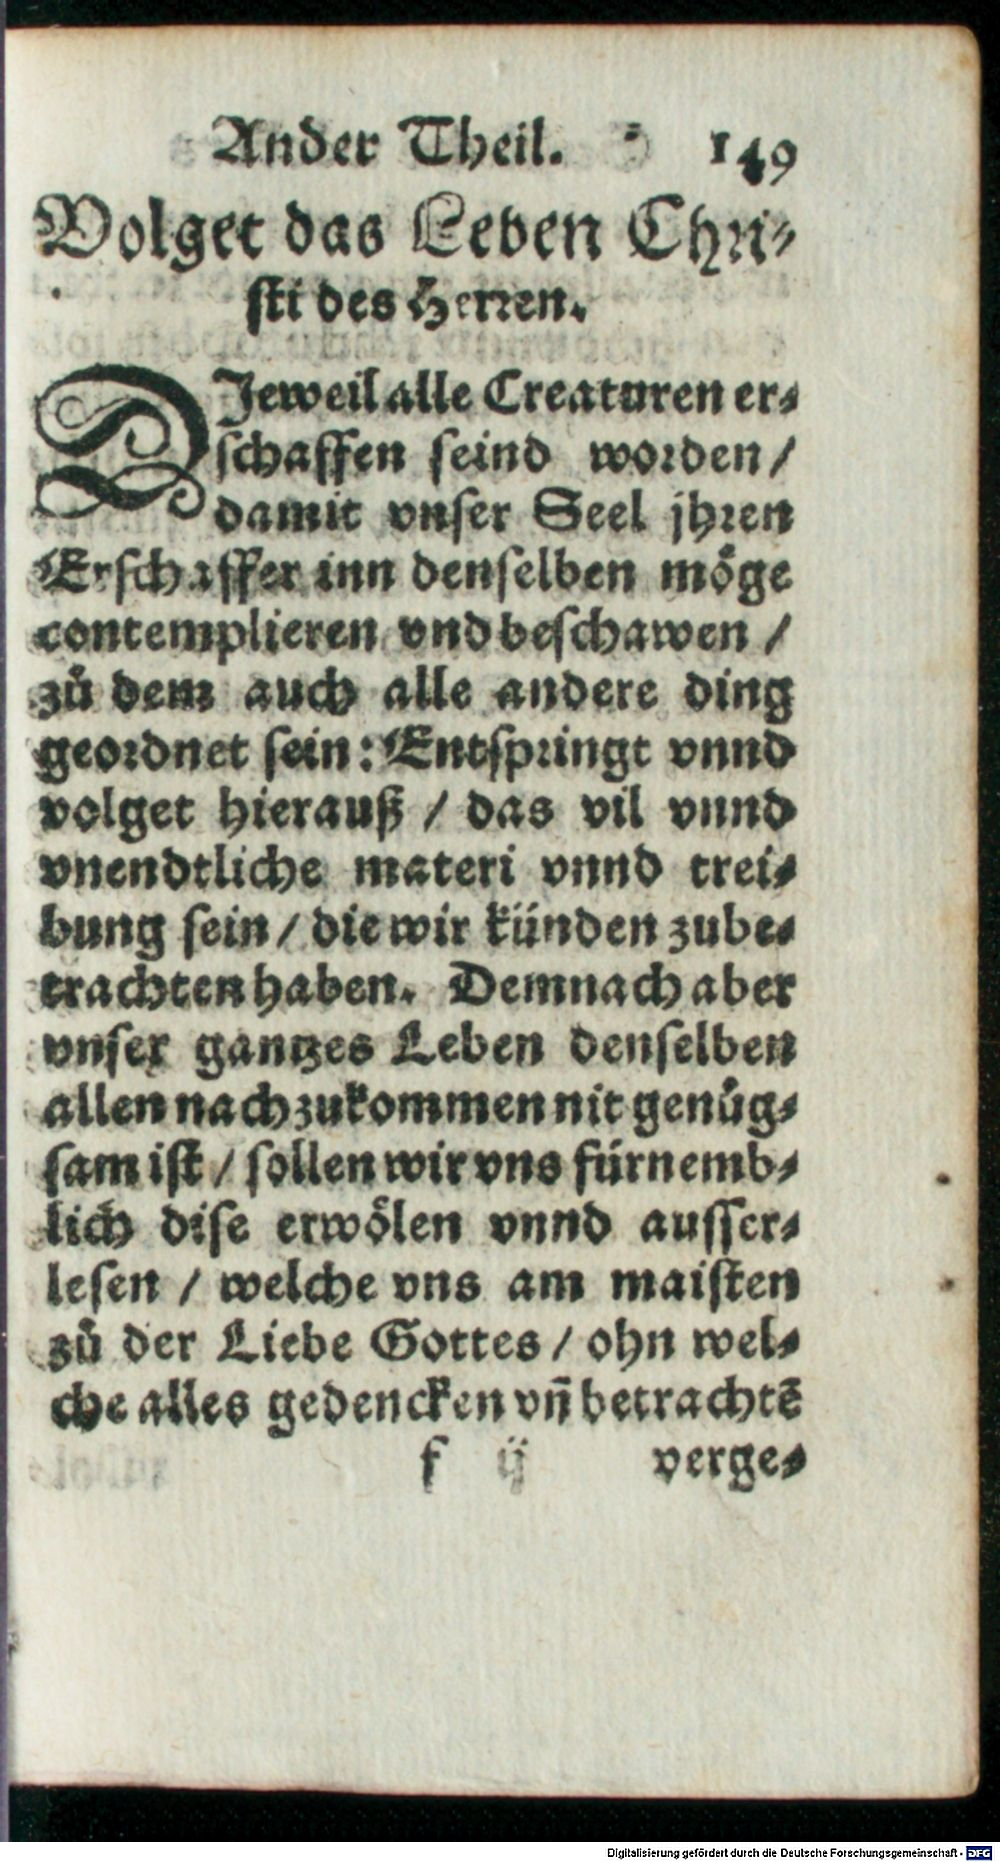 Ander Theil. 149
Volget das Leben Chri⸗
sti des Herren.
DJeweil alle Creaturen er⸗
schaffen seind worden /
damit vnser Seel jhren
Erschaffer inn denselben möge
contemplieren vnd beschawen /
zů dem auch alle andere ding
geordnet sein: Entspringt vnnd
volget hierauß / das vil vnnd
vnendtliche materi vnnd trei⸗
bung sein / die wir künden zube⸗
trachten haben. Demnach aber
vnser gantzes Leben denselben
allen nachzukommen nit genůg⸗
sam ist / sollen wir vns fürnemb⸗
lich dise erwölen vnnd ausser⸗
lesen / welche vns am maisten
zů der Liebe Gottes / ohn wel⸗
che alles gedencken vñ betrachtẽ
f ij verge⸗
Digitalisierung gefördert durch die Deutsche Forschungsgemeinschaft - DFG